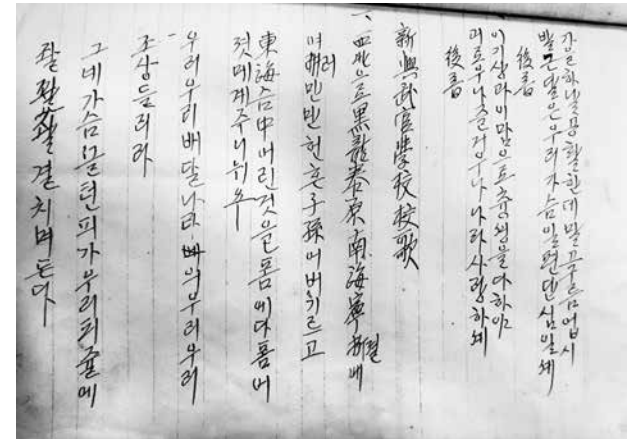 강은하날공활한데말끄름업시
발근달은우리가슴일편단심일세
後름
이기상과이맘으로충성을다하야
괴로우나즐거우나나라사랑하세
後름
新興武官學校校歌
一、西北으로黑龍泰原南海寧浙에
여러만만헌헌子孫어버기르고
東海섬中어린것을품에다품어
젓메겨주니뉘뇨
우리우리배달나라우리우리
조상들리라
그네가슴끌턴피가우리피줄에
좔좔좔결치며돈다